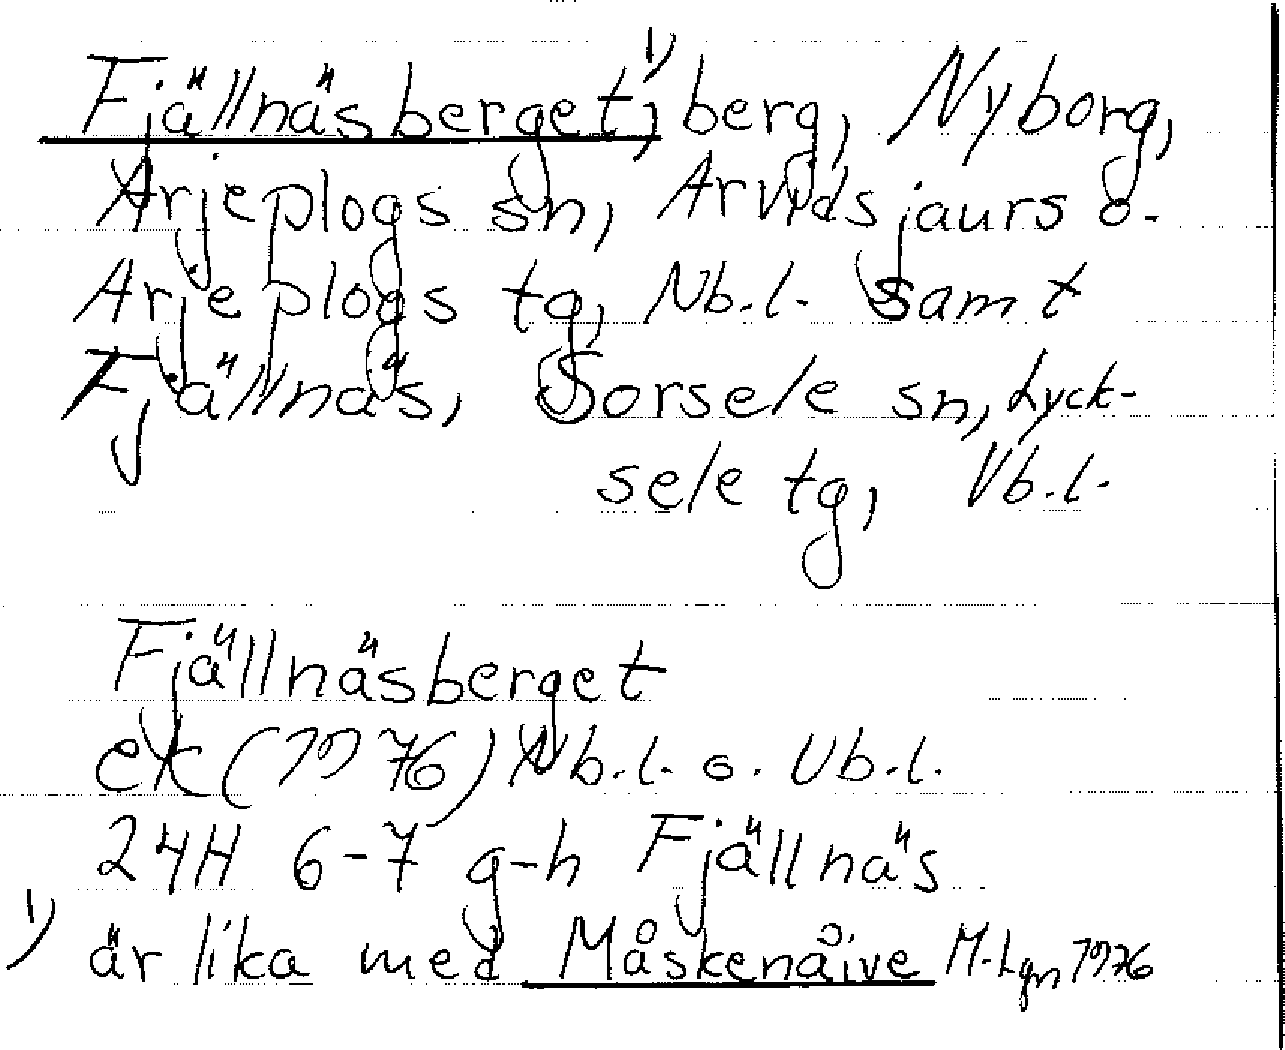 Fjällnäsberget,¹⁾ berg, Nyborg,
Arjeplogs sn, Arvidsjaurs o.
Arjeplogs tg, Nb.l. samt
Fjällnäs, Sorsele sn, Lyck-
sele tg, Vb.l.
Fjällnäsberget
ek (1976) Nb.l. o. Vb.l.
24H 6-7 g-h Fjällnäs
1) är lika med Måskenåive M.Lgn 1976